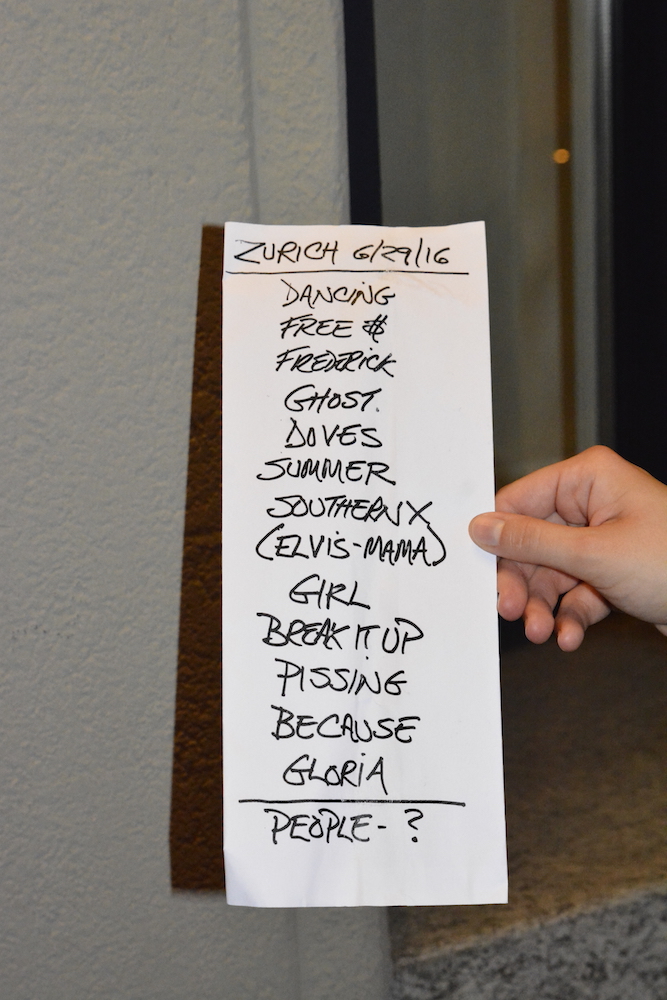 ZURICH 6/29/16
DANCING
FREE $
FREDERICK
GHOST.
DOVES
SUMMER
SOUTHERN X
(ELVIS-MAMA)
GIRL
BREAK IT UP
PISSING
BECAUSE
GLORIA
PEOPLE- ?